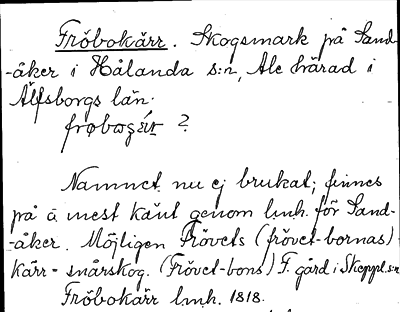 Fröbokärr. Skogsmark på Sand-
-åker i Hålanda s:n, Ale härad i
Älfsborgs län.
?
Namnet nu ej brukat; finnes
på ä mest känt genom lmh. för Sand-
-åker. Möjligen Frövets (frövet-bornas)
kärr - snårskog. (Frövet-bons) F. gård i Skeppl. s:n
Fröbokärr lmh. 1818.